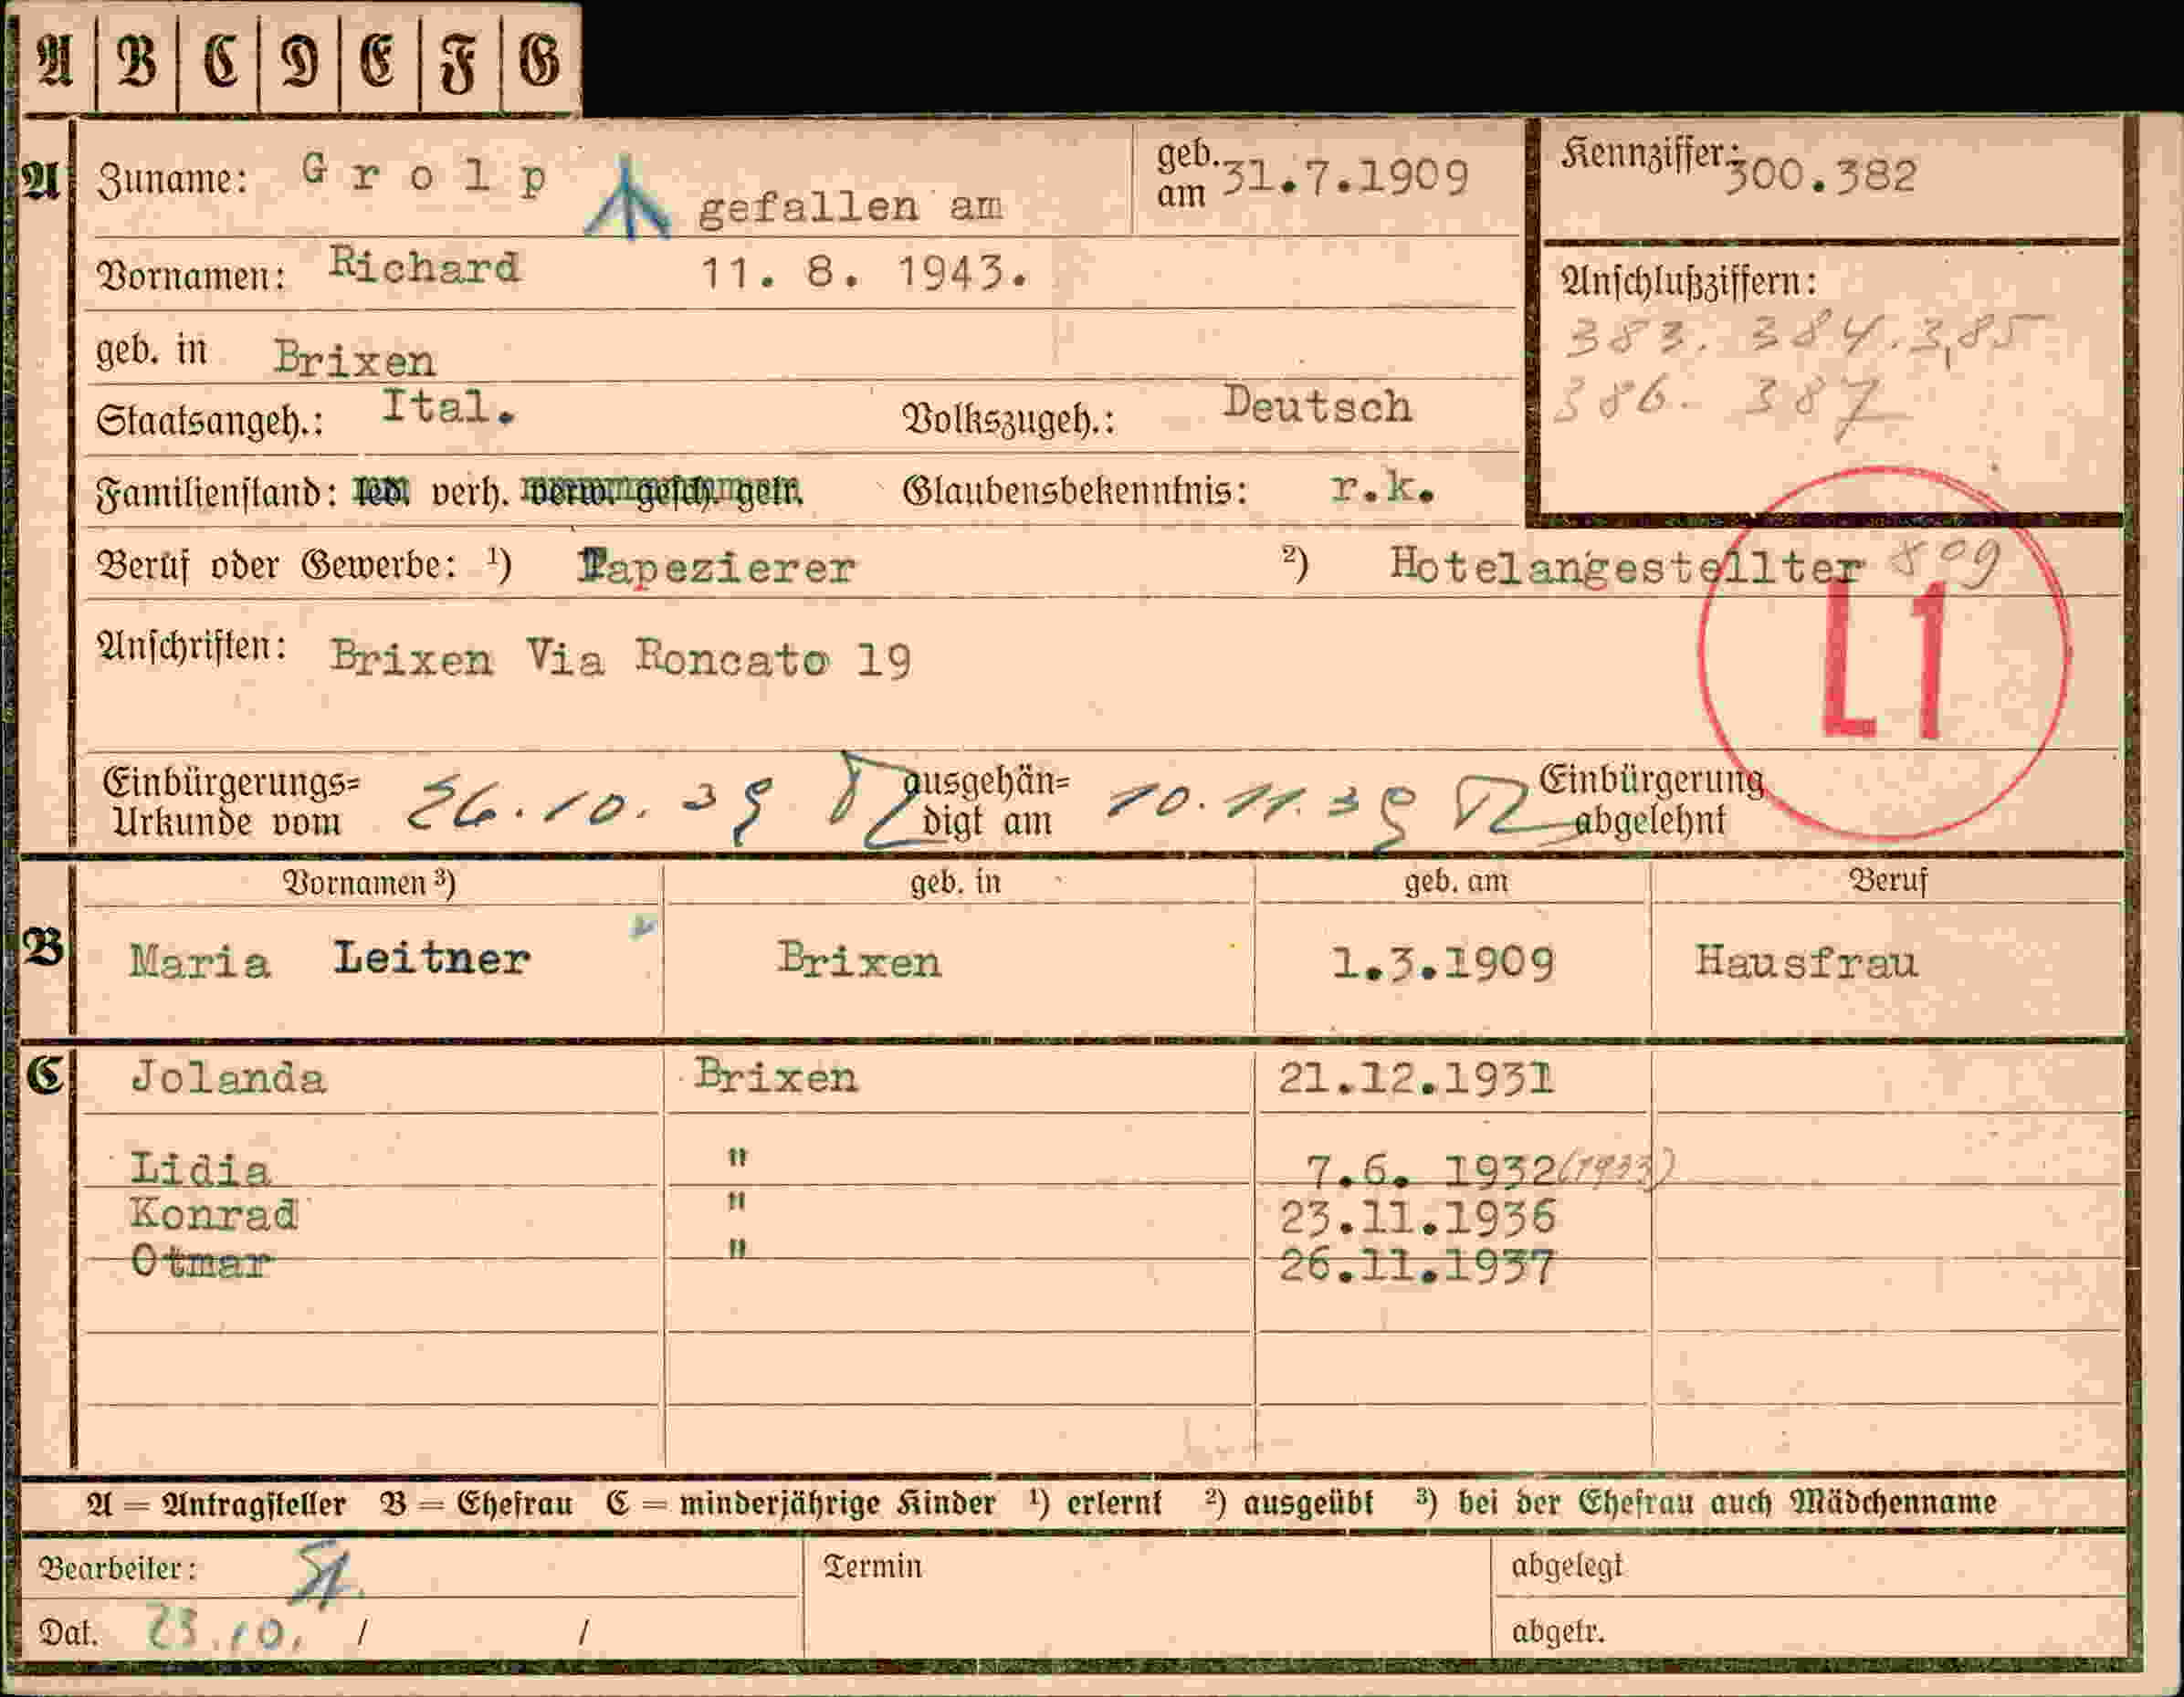 A B C D E F G
A Zuname: Grolp geb. am 31.7.1909 Kennziffer: 300.382
gefallen am
Vornamen: Richard 11. 8. 1943.
Anschlußziffern:
383. 384. 385
386. 387
geb. in Brixen
Staatsangeh.: Ital. Volkszugeh.: Deutsch
Familienstand: led. verh. verw. gesch. getr. Glaubensbekenntnis: r.k.
Beruf oder Gewerbe: ¹) Tapezierer ²) Hotelangestellter 809
L1
Anschriften: Brixen Via Roncato 19
Einbürgerungs=Urkunde vom 26.10.39 ausgehän=digt am 10.11.39 Einbürgerung abgelehnt
Vornamen ³) geb. in geb. am Beruf
B Maria Leitner Brixen 1.3.1909 Hausfrau
C Jolanda Brixen 21.12.1931
Lidia " 7.6. 1932 (1933)
Konrad " 23.11.1936
Otmar " 26.11.1937
A = Antragsteller B = Ehefrau C = minderjährige Kinder ¹) erlernt ²) ausgeübt ³) bei der Ehefrau auch Mädchenname
Bearbeiter: Termin abgelegt
Dat. 23.10. / / abgetr.